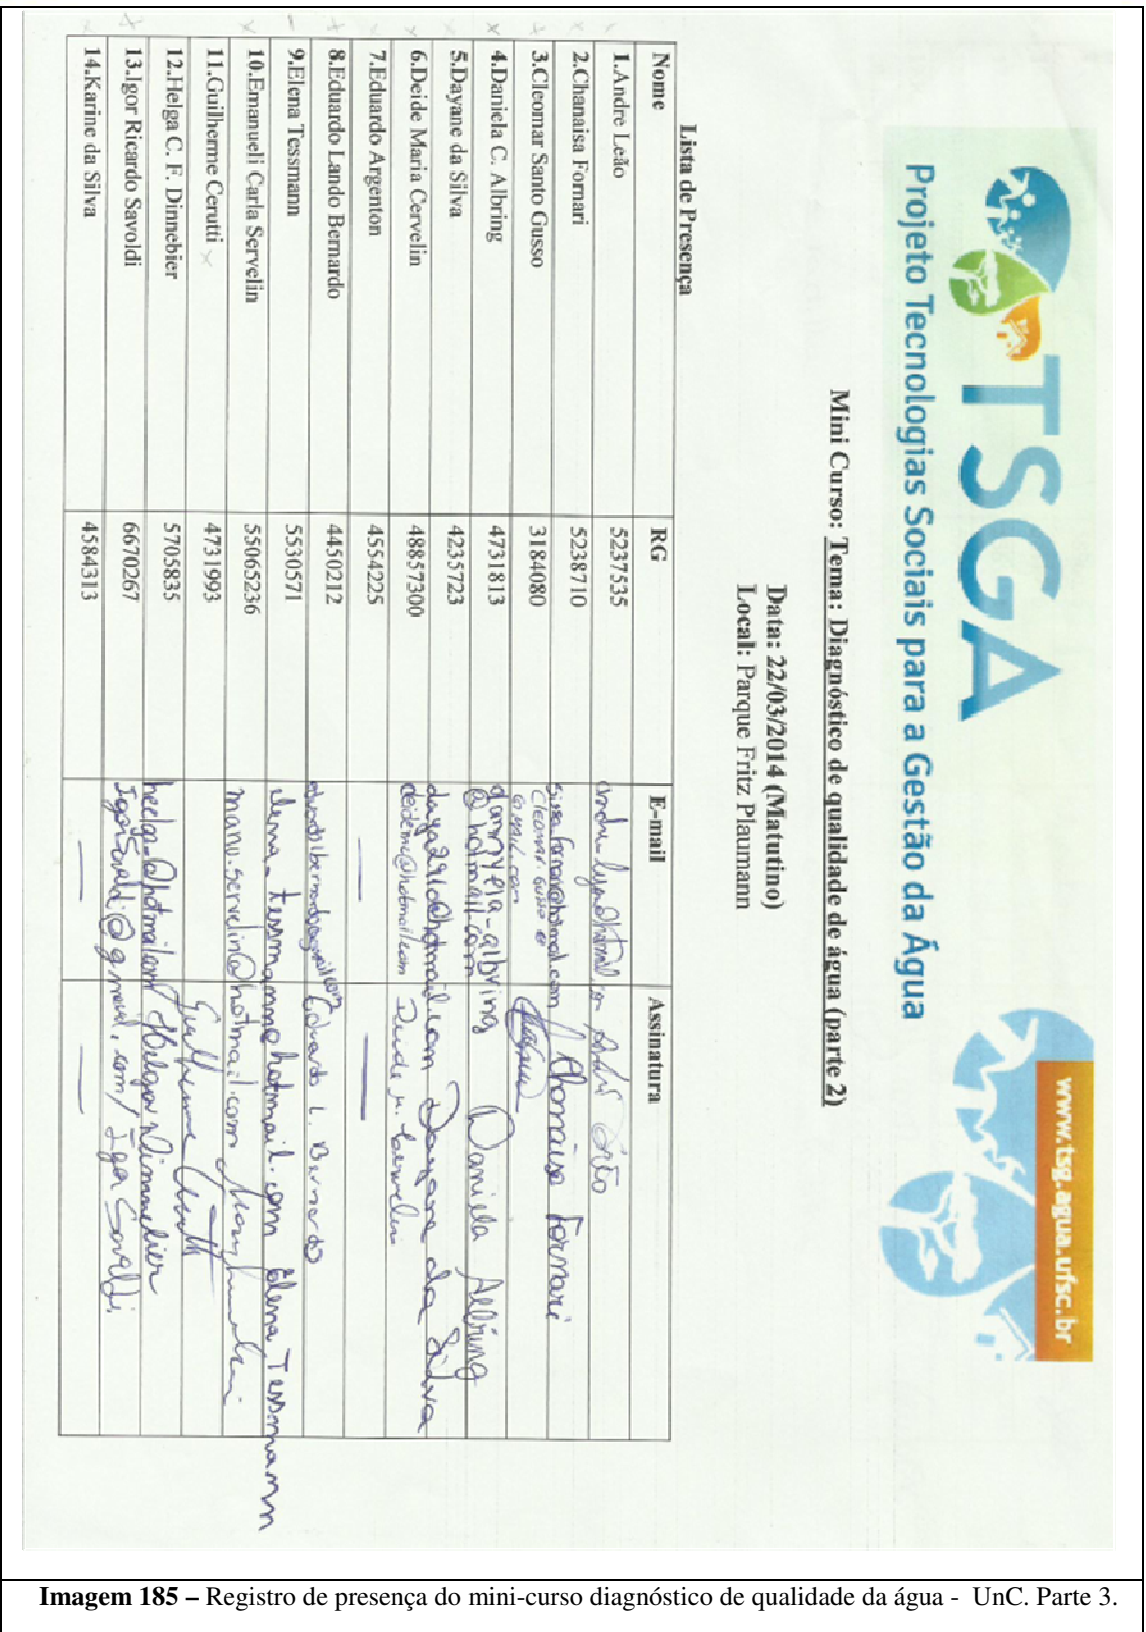 TSGA
Projeto Tecnologias Sociais para a Gestão da Água
www.tsg.agua.ufsc.br
Mini Curso: Tema: Diagnóstico de qualidade de água (parte 2)
Data: 22/03/2014 (Matutino)
Local: Parque Fritz Plaumann
Lista de Presença
Nome RG E-mail Assinatura
1.André Leão 5237535
2.Chanaisa Fornari 5238710 Chanaisa Fornari
3.Cleomar Santo Gusso 3184080
4.Daniela C. Albring 4731813 dannyela-albring @hotmail.com Daniela Albring
5.Dayane da Silva 4235723 Dayane da Silva
6.Deide Maria Cervelin 48857300 deidemc@hotmail.com Deide M. Cervelin
7.Eduardo Argenton 4554225
8.Eduardo Lando Bernardo 4450212 Eduardo L. Bernardo
9.Elena Tessmann 5530571 elena_tessmann@hotmail.com Elena Tessmann
10.Emanueli Carla Servelin 55065236 manu.servelin@hotmail.com
11.Guilherme Cerutti 4731993 Guilherme Cerutti
12.Helga C. F. Dinnebier 5705835 Helga Dinnebier
13.Igor Ricardo Savoldi 6670267 Igor Savoldi
14.Karine da Silva 4584313
Imagem 185 – Registro de presença do mini-curso diagnóstico de qualidade da água - UnC. Parte 3.